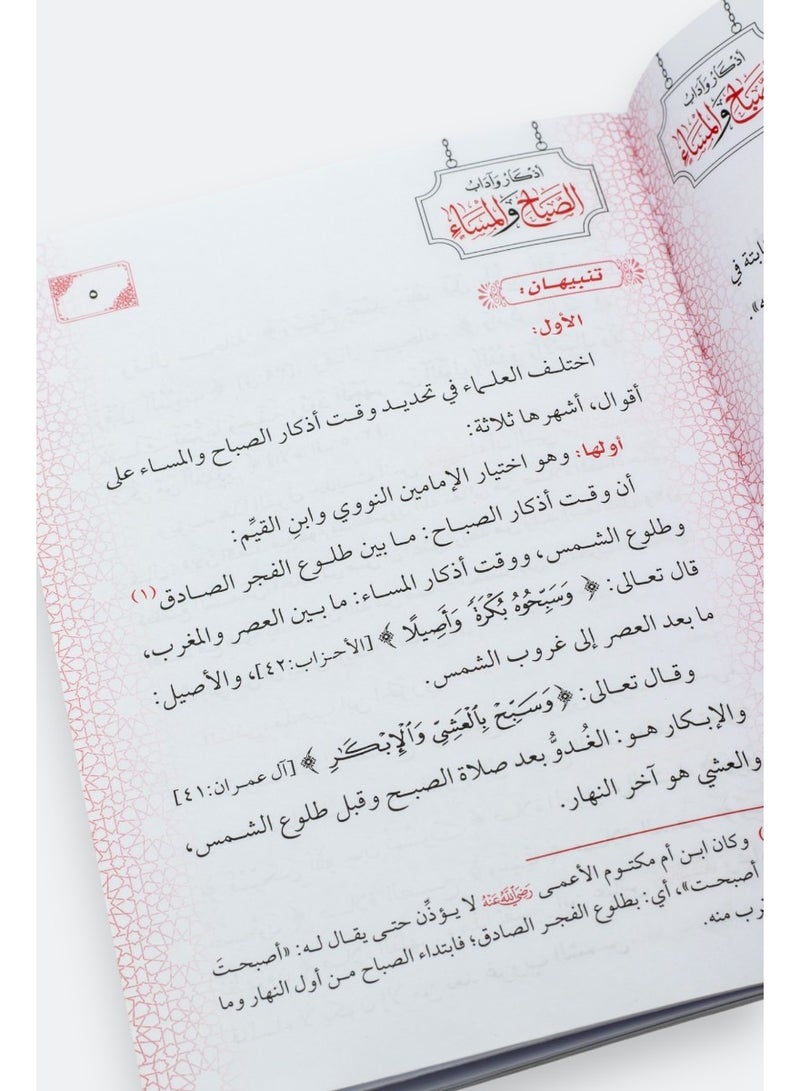 أذكار وآداب
الصباح والمساء
٥
تنبيهان:
الأول:
اختلف العلماء في تحديد وقت أذكار الصباح والمساء على
أقوال، أشهرها ثلاثة:
أولها: وهو اختيار الإمامين النووي وابنِ القيِّم:
أن وقت أذكار الصباح: ما بين طلوع الفجر الصادق (١)
وطلوع الشمس، ووقت أذكار المساء: ما بين العصر والمغرب،
قال تعالى: ﴿ وَسَبِّحُوهُ بُكْرَةً وَأَصِيلًا ﴾ [الأحزاب:٤٢]، والأصيل:
ما بعد العصر إلى غروب الشمس.
وقال تعالى: ﴿ وَسَبِّحْ بِالْعَشِيِّ وَالْإِبْكَارِ ﴾ [آل عمران:٤١]
والإبكار هو: الغُدوُّ بعد صلاة الصبح وقبل طلوع الشمس،
والعشي هو آخر النهار.
وكان ابن أم مكتوم الأعمى رَضِيَ اللَّهُ عَنْهُ لا يؤذِّن حتى يقال له: «أصبحتَ
أصبحت»، أي: بطلوع الفجر الصادق؛ فابتداء الصباح من أول النهار وما
منه.
أذكار وآداب
الصباح والمساء
في